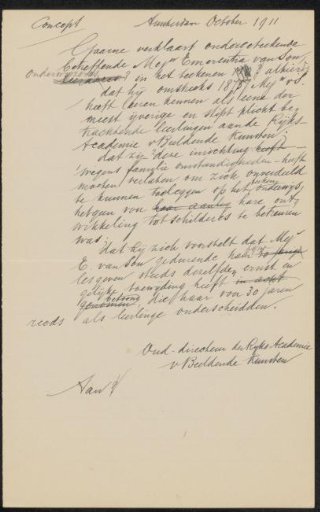 Concept Amsterdam October 1911
Gaarne verklaart ondergeteekende
betreffende Mej. Emerentia van Son,
in het teekenen alhier,
dat hij omstreeks 18 Mej. v. S.
heeft leeren kennen als eene der
meest ijverige en stipt plicht be-
trachtende leerlingen aan de Rijks
Academie v Beeldende Kunsten;
dat zij deze inrichting heeft
wegens familie omstandigheden heeft
moeten verlaten, om zich onverdeeld
te kunnen toeleggen op het onderwijs,
hetgeen voor hare ont-
wikkeling tot schilderes te betreuren
was;
dat hij zich voorstelt dat Mej.
E. van Son gedurende haar
lesgeven steeds denzelfden ernst en
gelijke toewijding heeft in acht
genomen betoond die haar voor 30 jaren
reeds als leerlinge onderscheidden.
Oud-directeur der Rijks Academie
v Beeldende Kunsten
Aan